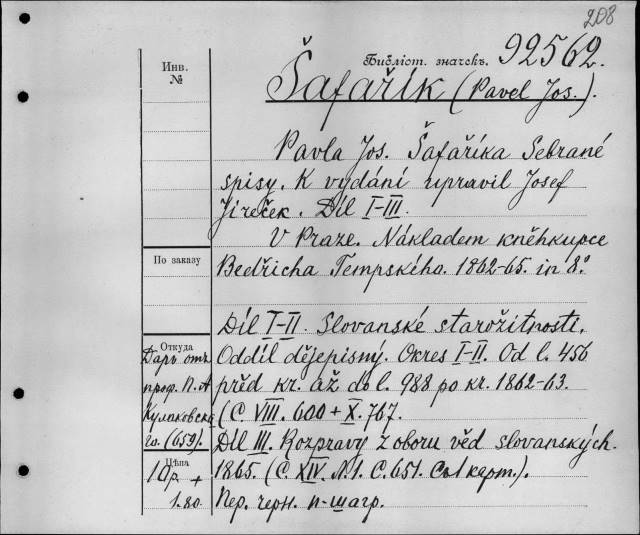 208
Библіот. значекъ. 92562.
Инв. №
Šafařík (Pavel Jos.).
Pavla Jos. Šafaříka Sebrané
spisy. K vydání upravil Josef
Jireček. Díl I-III.
V Praze. Nákladem kněhkupce
По заказу
Bedřicha Tempského. 1862-65. in 8.°
Díl I-II. Slovanské starožitnosti.
Откуда
Oddíl dějepisný. Okres I-II. Od l. 456
Даръ отъ
před kr. až do l. 988 po kr. 1862-63.
проф. П. А
(С. VIII. 600 + X. 767.
Кулаковска
го. (659).
Díl III. Rozpravy z oboru věd slovanských.
Цѣна
1865. (С. XIV. Л 1. С. 651. Со 1 карт.).
1 др. +
1.80
Пер. черн. п-шагр.